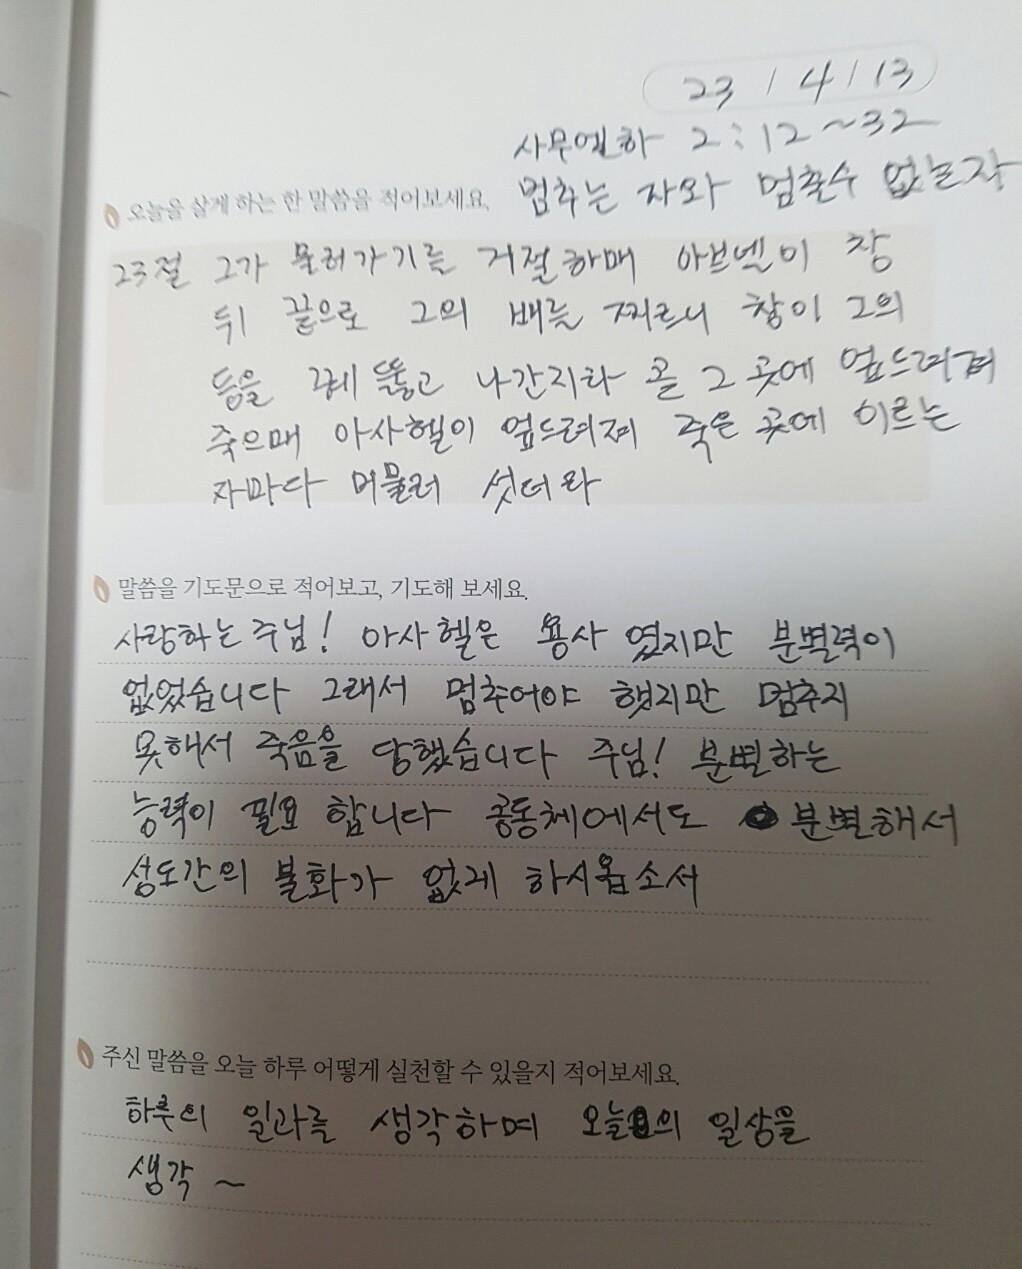 23 / 4 / 13
사무엘하 2:12~32
멈추는 자와 멈출수 없는자
오늘을 살게 하는 한 말씀을 적어보세요.
23절 그가 물러가기를 거절하매 아브넬이 창
뒤 끝으로 그의 배를 찌르니 창이 그의
등을 꿰뚫고 나간지라 곧 그 곳에 엎드러져
죽으매 아사헬이 엎드려져 죽은 곳에 이르는
자마다 머물러 섯더라
말씀을 기도문으로 적어보고, 기도해 보세요.
사랑하는 주님! 아사헬은 용사 였지만 분별력이
없었습니다 그래서 멈추어야 했지만 멈추지
못해서 죽음을 당했습니다 주님! 분별하는
능력이 필요 합니다 공동체에서도 분별해서
성도간의 불화가 없게 하시옵소서
주신 말씀을 오늘 하루 어떻게 실천할 수 있을지 적어보세요.
하루의 일과를 생각하며 오늘의 일상을
생각 ~